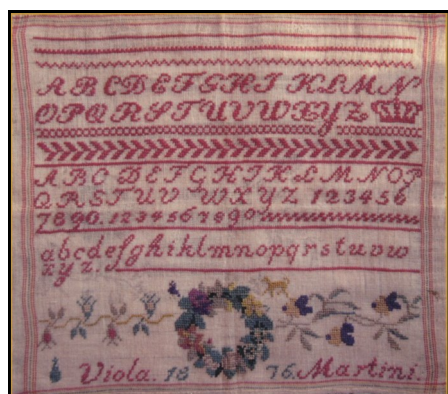 ABCDEFGHI KLMN
OPQRSTUVWXYZ
ABCDEFGHIKLMNOP
QRSTUV WXYZ 123456
7890.1234567890
abcdefghiklmnopqrstuvw
xyz.
Viola. 1876. Martini.